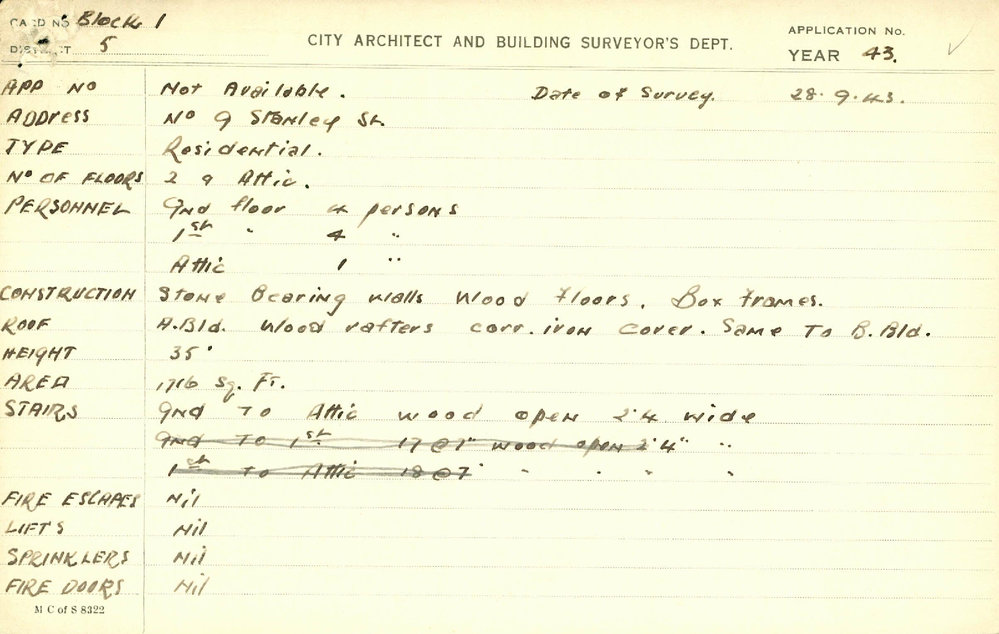 CARD No Block 1
DISTRICT 5
CITY ARCHITECT AND BUILDING SURVEYOR'S DEPT.
APPLICATION No.
YEAR 43.
APP NO Not Available. Date of Survey. 28.9.43.
ADDRESS No 9 Stanley St.
TYPE Residential.
No OF FLOORS 2 & Attic.
PERSONNEL Gnd floor 4 persons
1st " 4 "
Attic 1 "
CONSTRUCTION Stone Bearing walls Wood Floors. Box Frames.
ROOF A.Bld. Wood rafters corr. iron cover. Same To B.Bld.
HEIGHT 35'
AREA 1716 Sq. Ft.
STAIRS Gnd To Attic wood open 2'4 wide
Gnd To 1st 17 @ 7" wood open 2'4" "
1st To Attic 18 @ 7" " " " "
FIRE ESCAPES Nil
LIFTS Nil
SPRINKLERS Nil
FIRE DOORS Nil
M C of S 8322